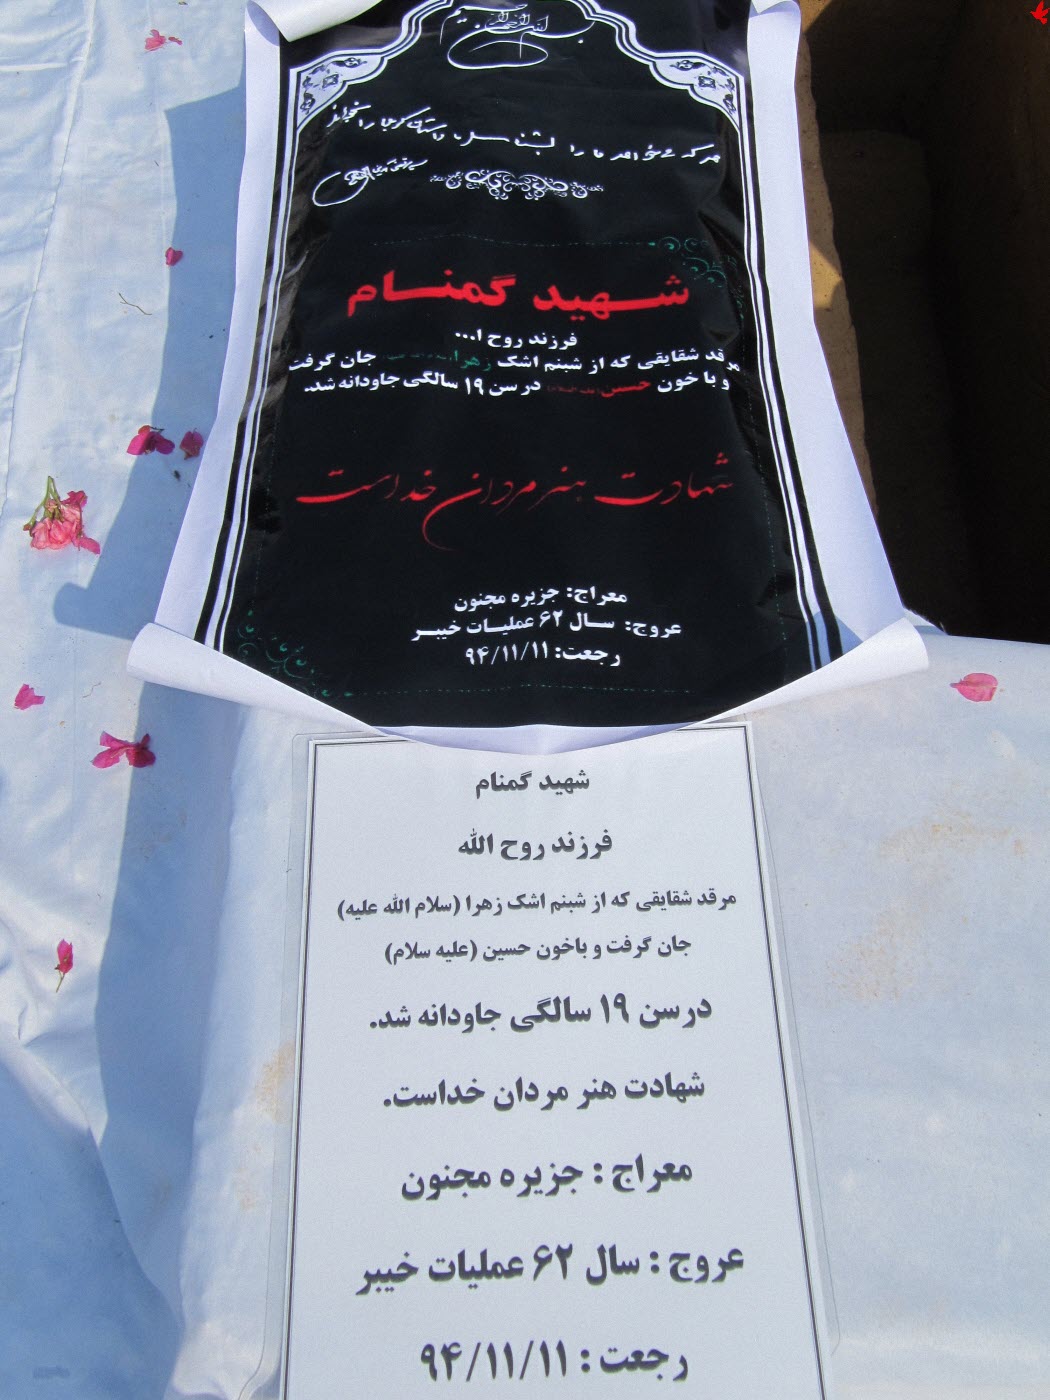 بسم الله الرحمن الرحیم
هر که میخواهد ما را بشناسد داستان کربلا را بخواند
سید مرتضی آوینی
شهید گمنام
فرزند روح ا...
مرقد شقایقی که از شبنم اشک زهرا جان گرفت
و با خون حسین (علیه السلام) در سن ۱۹ سالگی جاودانه شد.
شهادت هنر مردان خداست
معراج: جزیره مجنون
عروج: سال ۶۲ عملیات خیبر
رجعت: ۹۴/۱۱/۱۱
شهید گمنام
فرزند روح الله
مرقد شقایقی که از شبنم اشک زهرا (سلام الله علیه)
جان گرفت و باخون حسین (علیه سلام)
درسن ۱۹ سالگی جاودانه شد.
شهادت هنر مردان خداست.
معراج : جزیره مجنون
عروج : سال ۶۲ عملیات خیبر
رجعت : ۹۴/۱۱/۱۱